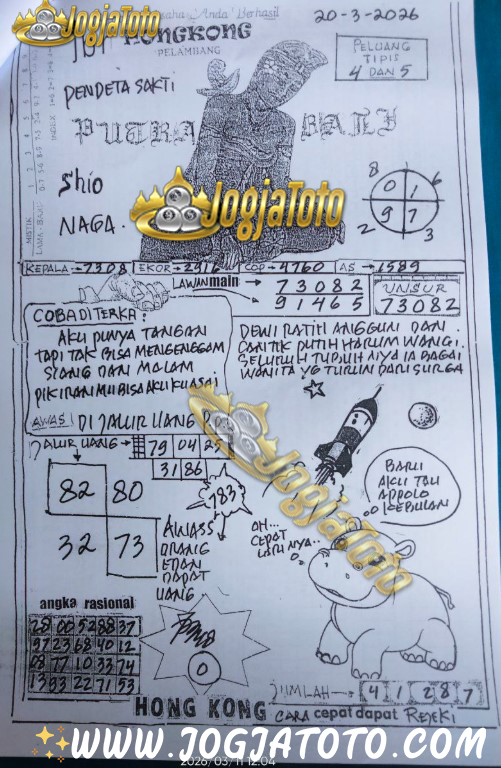 JogjaToto
Anda Berhasil
20-3-2026
HONGKONG
PELAMBANG
PELUANG
TIPIS
4 DAN 5
PENDETA SAKTI
PUTRA BALI
Shio
NAGA
JogjaToto
8 0 1 6
2 9 7 3
KEPALA → 7308 EKOR → 2916 COP → 4760 AS → 1589
LAWAN main → 73082
91465
UNSUR
73082
COBA DITERKA:
AKU PUNYA TANGAN
TAPI TAK BISA MENGENGGAM
SIANG DAN MALAM
PIKIRAN MU BISA AKU KUASAI
AWAS! DI JALUR UANG
DEWI RATIH ANGGUN DAN
CANTIK PUTIH HARUM WANGI.
SELURUH TUBUH NYA IA BAGAI
WANITA YG TURUN DARI SURGA
JALUR UANG → 79 04 25
31 86
JogjaToto
82 80
32 73
783
AWASS
ORANG
EDAN
DAPAT
UANG
AH...
CEPAT
LARI NYA..
BARU
AKU TAU
APPOLO
KEBULAN
angka rasional
28 00 52 88 37
97 23 68 40 12
08 77 10 33 74
13 93 22 71 53
0
JUMLAH → 4 1 2 8 7
HONG KONG CARA cepat dapat REJEKI
WWW.JOGJATOTO.COM
2026/03/11 12:04